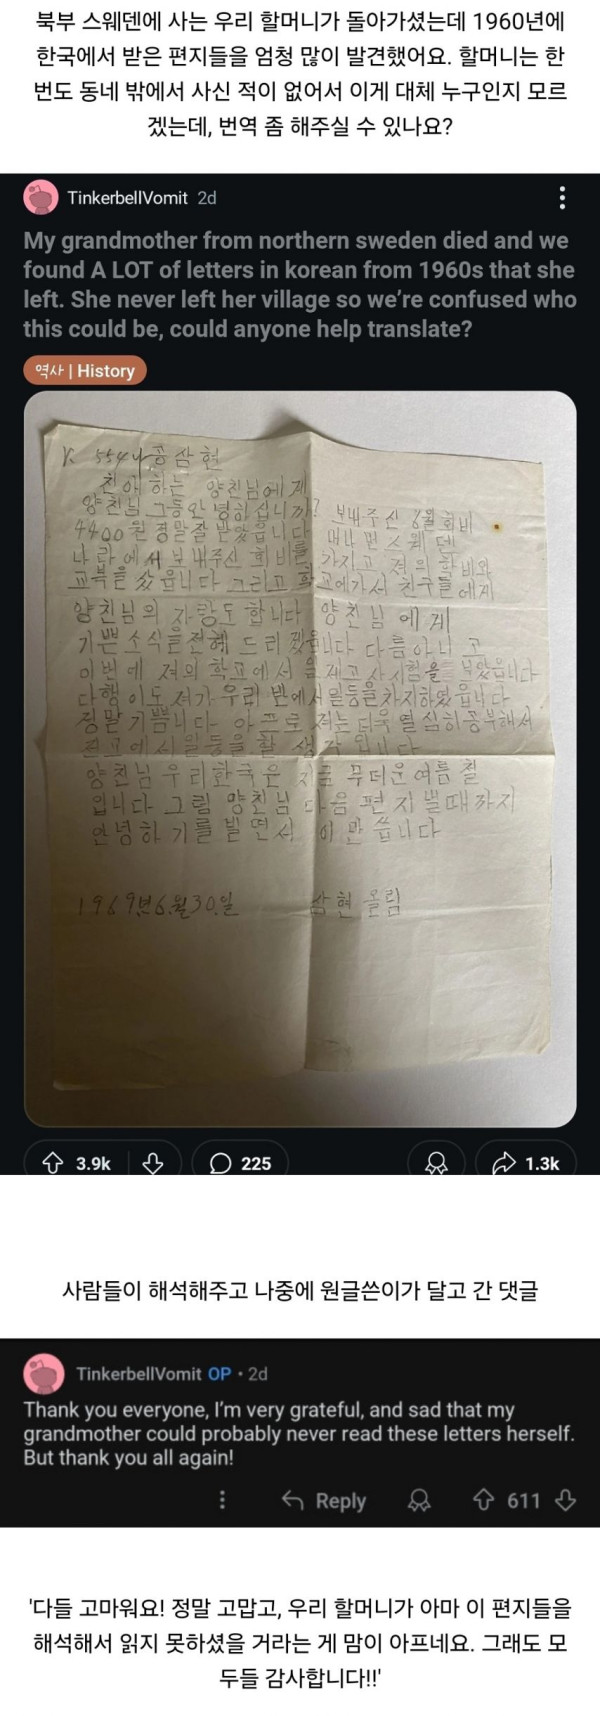 북부 스웨덴에 사는 우리 할머니가 돌아가셨는데 1960년에
한국에서 받은 편지들을 엄청 많이 발견했어요. 할머니는 한
번도 동네 밖에서 사신 적이 없어서 이게 대체 누구인지 모르
겠는데, 번역 좀 해주실 수 있나요?
TinkerbellVomit 2d
My grandmother from northern sweden died and we
found A LOT of letters in korean from 1960s that she
left. She never left her village so we're confused who
this could be, could anyone help translate?
역사 | History
K 5544 공삼현
친애하는 양친님에게
양친님 그동안 녕하십니까? 보내주신 6월 회비
4400원 정말 잘 받았읍니다 머나먼 스웨덴
나라에서 보내주신 회비를 가지고 져의 학비와
교복을 샀읍니다 그리고 학교에 가서 친구들에게
양친님의 자랑도 합니다 양친님에게
기쁜 소식을 전해 드리겠읍니다 다름아니고
이번에 져의 학교에서 일제고사 시험을 보았읍니다
다행이도 져가 우리 반에서 일등을 차지하였읍니다
정말 기쁩니다 아프로 져는 더욱 열심히 공부해서
전교에서 일등을 할 생각입니다
양친님 우리 한국은 지금 무더운 여름철
입니다 그럼 양친님 다음 편지 쓸때까지
안녕하기를 빌면서 이만 씁니다
1969년 6월 30일 삼현 올림
3.9k 225 1.3k
사람들이 해석해주고 나중에 원글쓴이가 달고 간 댓글
TinkerbellVomit OP • 2d
Thank you everyone, I'm very grateful, and sad that my
grandmother could probably never read these letters herself.
But thank you all again!
Reply 611
'다들 고마워요! 정말 고맙고, 우리 할머니가 아마 이 편지들을
해석해서 읽지 못하셨을 거라는 게 맘이 아프네요. 그래도 모
두들 감사합니다!!'